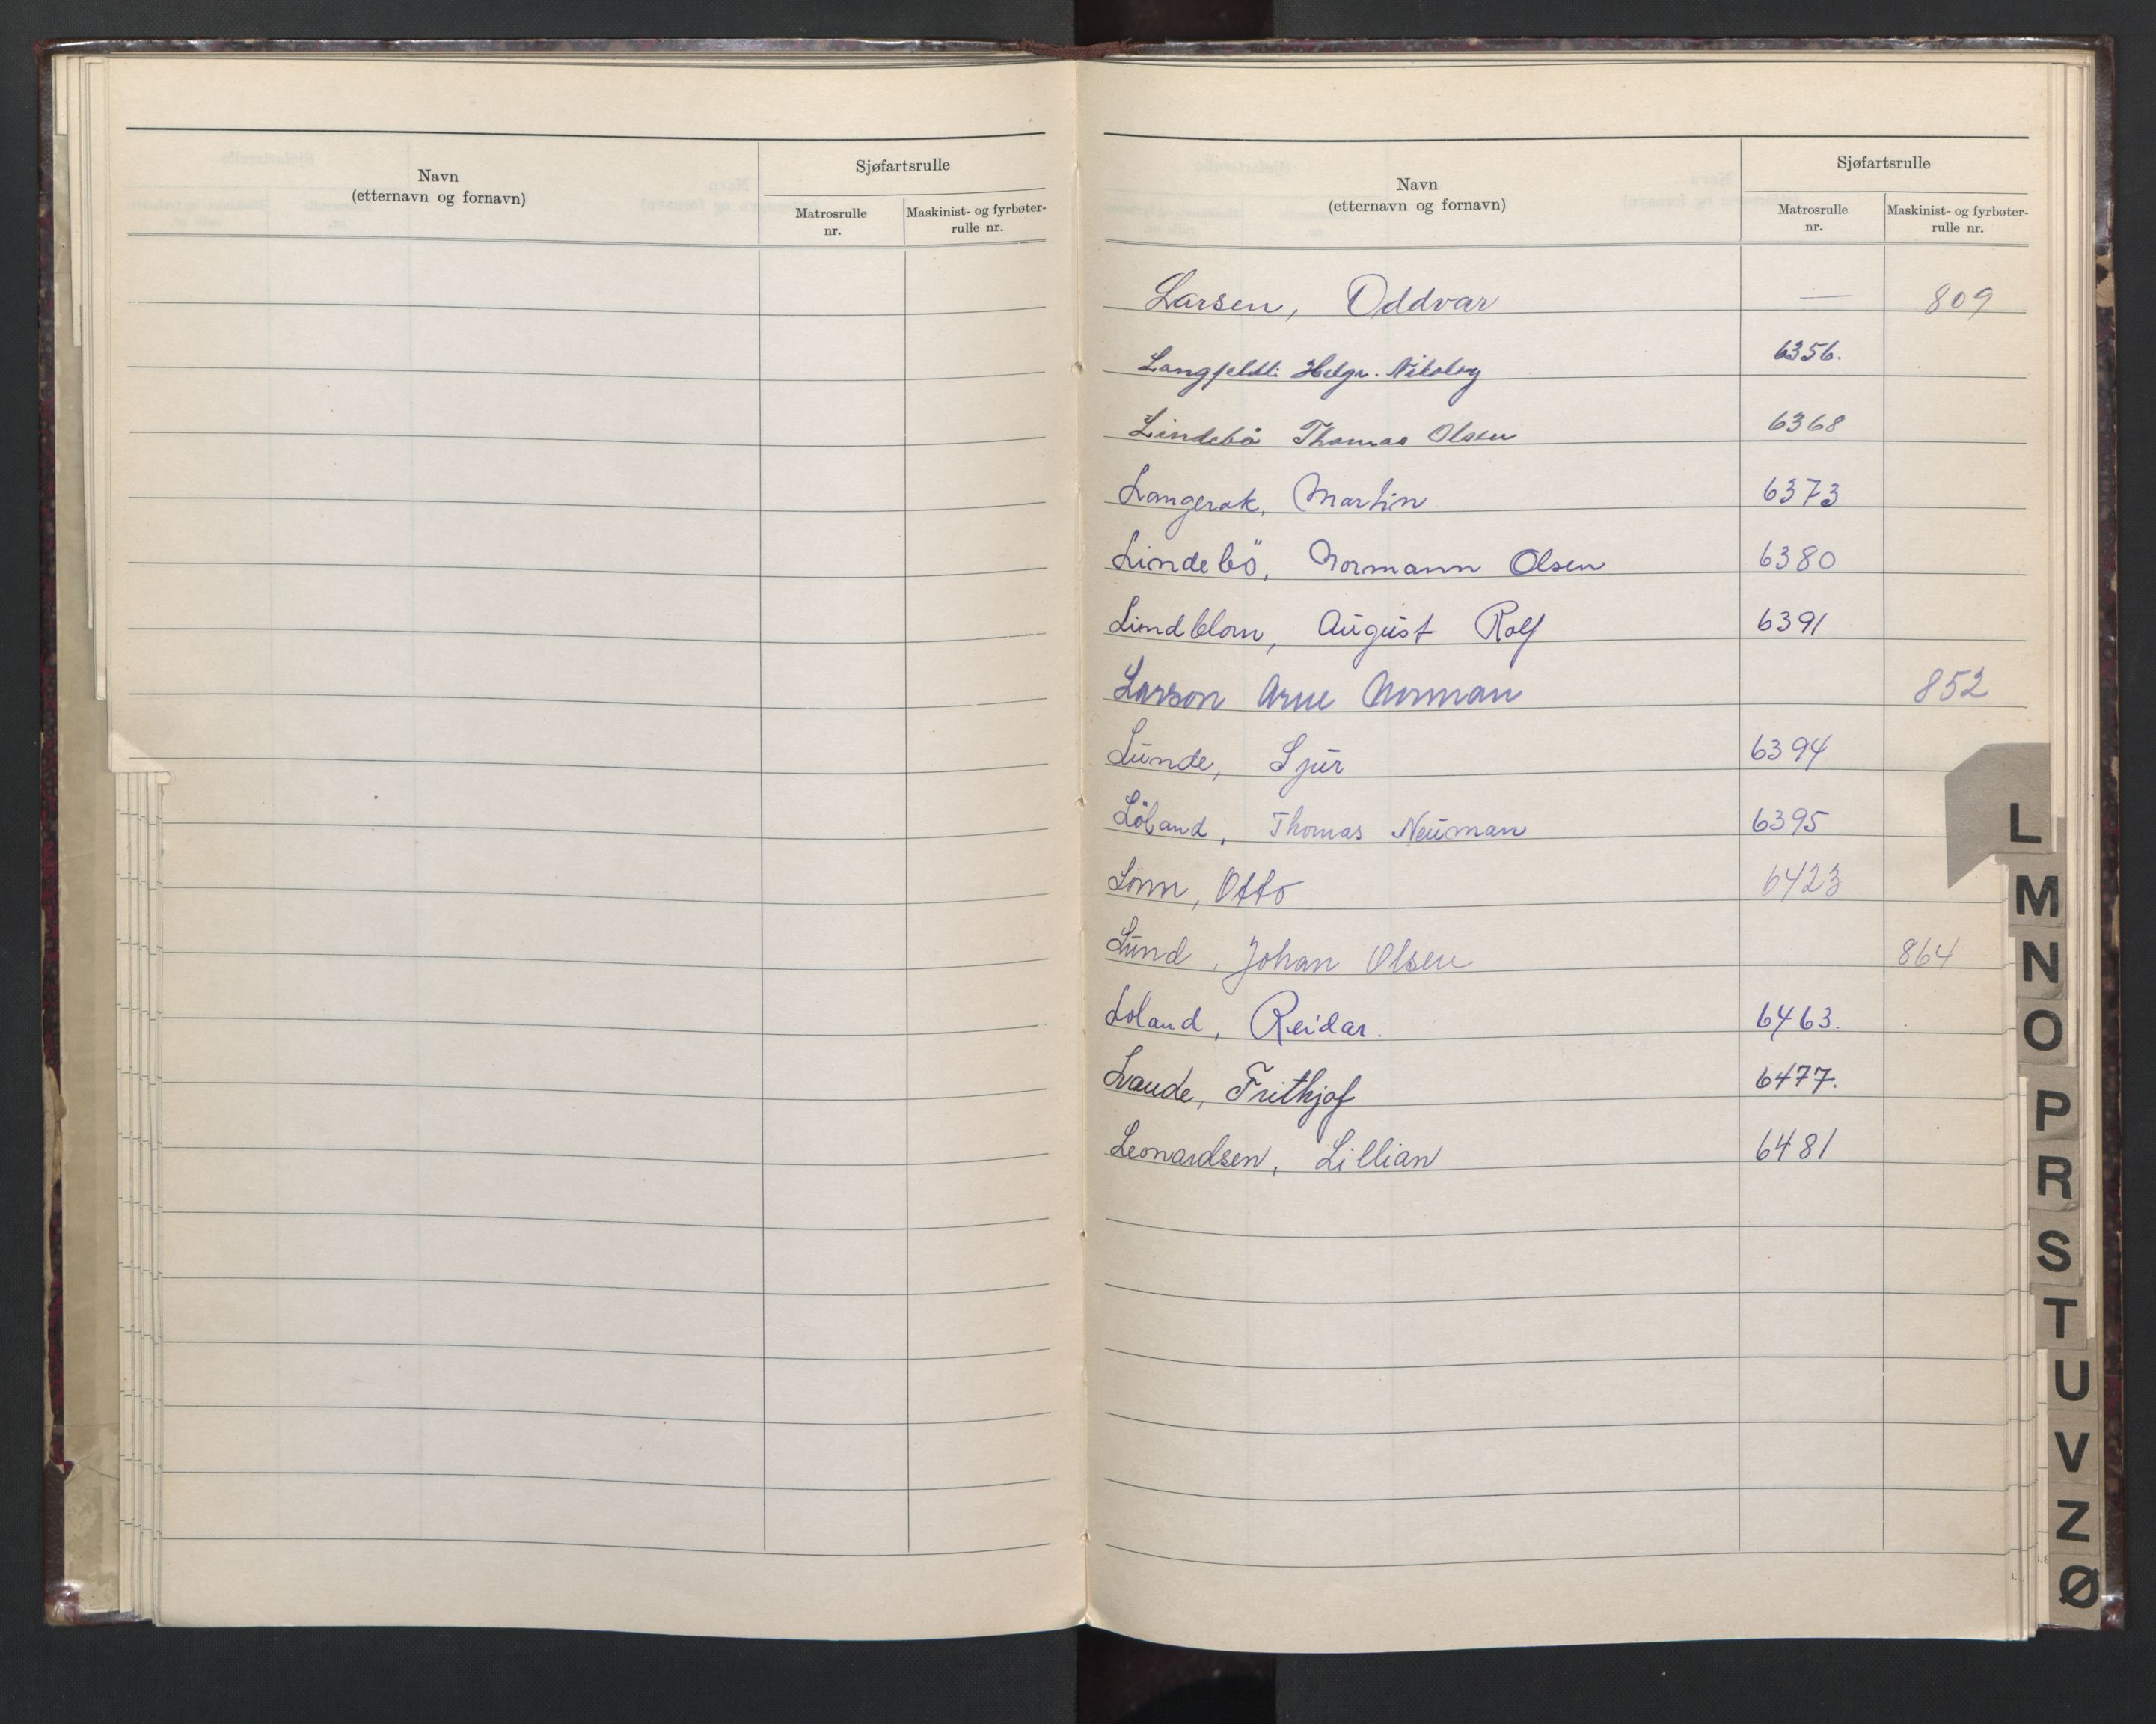 Navn
(etternavn og fornavn)
Sjøfartsrulle
Matrosrulle nr.
Maskinist- og fyrbøter-rulle nr.
Navn
(etternavn og fornavn)
Sjøfartsrulle
Matrosrulle nr.
Maskinist- og fyrbøter-rulle nr.
Larsen, Oddvar — 809
Helge Nikolay 6356.
Lindebö Thomas Olsen 6368
Langerak, Martin 6373
Lindebö, Normann Olsen 6380
Lindblom, August Rolf 6391
Larson Arne Norman 852
Lunde, Sjur 6394
Löland, Thomas Neuman 6395
Lönn, Otto 6423
Lund, Johan Olsen 864
Loland, Reidar. 6463.
Frithjof 6477.
Leonardsen, Lillian 6481
L
M
N
O
P
R
S
T
U
V
Z
Ø